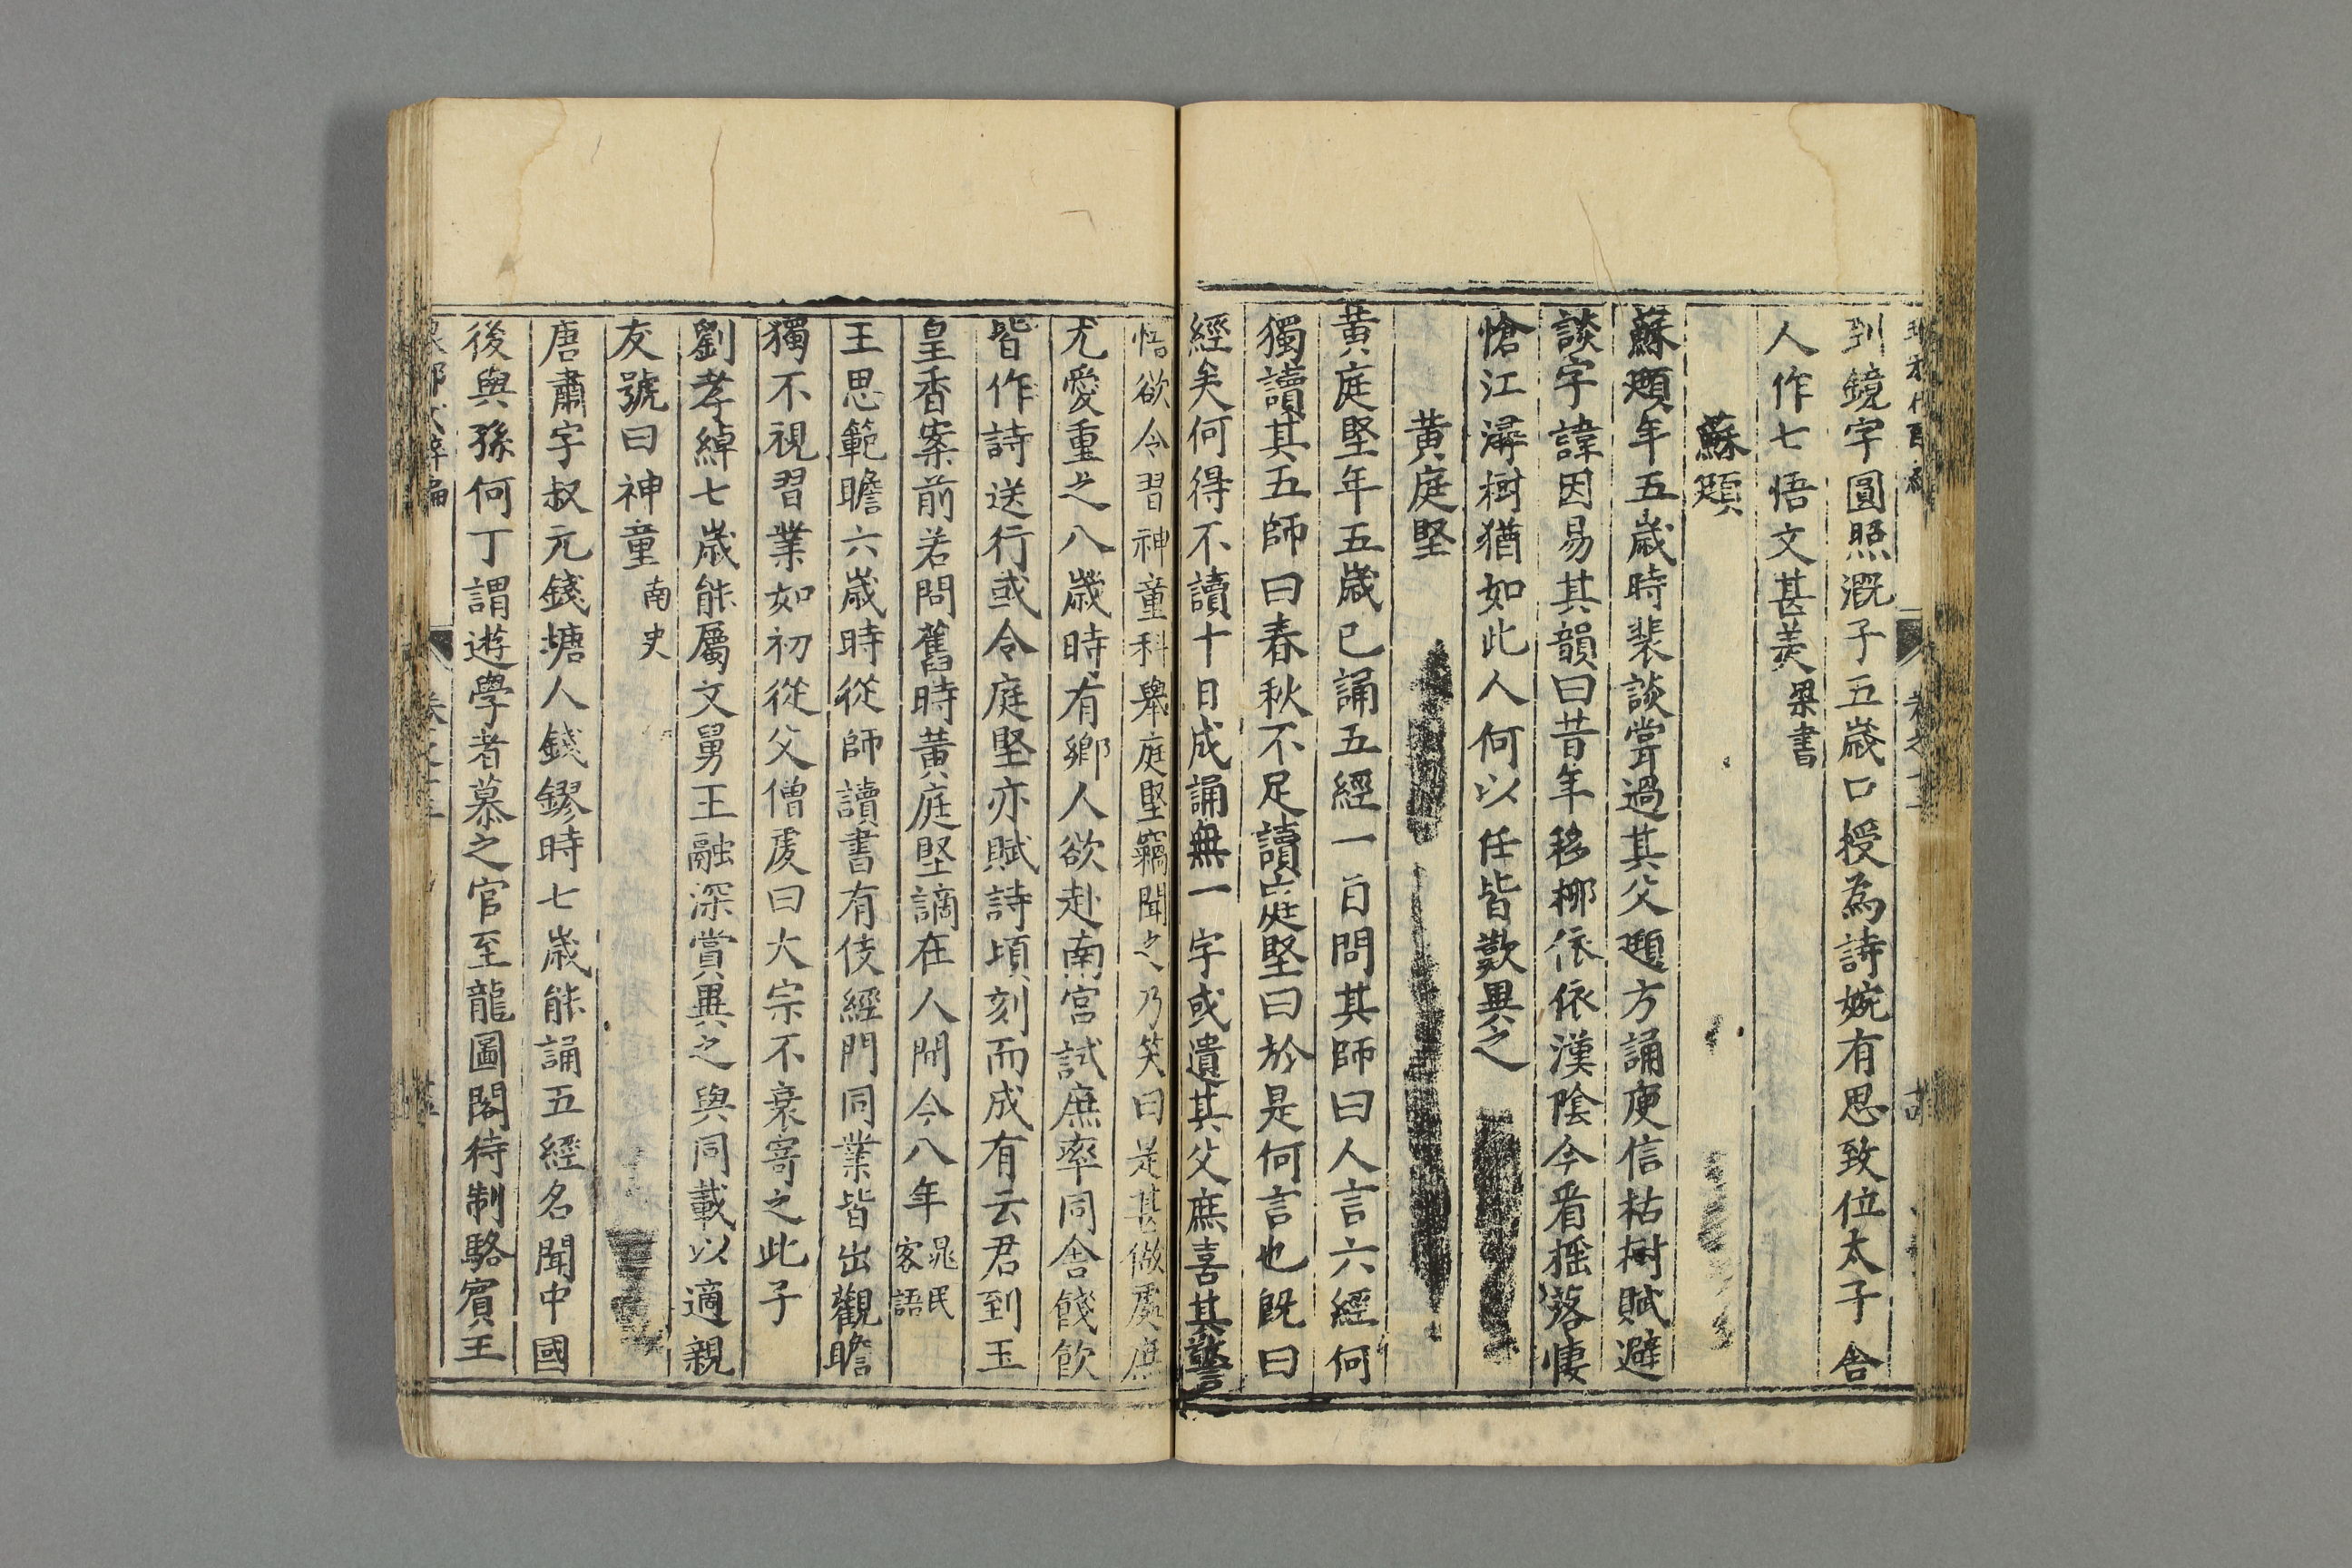 到鏡字圓照溉子五歲口授為詩婉有思致位太子舍
人作七悟文甚美梁書
蘇頲
蘇頲年五歲時裴談嘗過其父頲方誦庾信枯樹賦避
談字諱因易其韻曰昔年移柳依依漢陰今看摇落悽
愴江潯樹猶如此人何以任皆歎異之
黄庭堅
黄庭堅年五歲已誦五經一日問其師曰人言六經何
獨讀其五師曰春秋不足讀庭堅曰於是何言也既曰
經矣何得不讀十日成誦無一字或遺其父庶喜其警
悟欲令習神童科舉庭堅竊聞之乃笑曰是甚做處庶
尤愛重之八歲時有鄉人欲赴南宮試庶率同舍餞飲
皆作詩送行或令庭堅亦賦詩頃刻而成有云君到玉
皇香案前若問舊時黄庭堅謫在人間今八年晁氏客語
王思範瞻六歲時從師讀書有伎經門同業皆出觀瞻
獨不視習業如初從父僧虔曰大宗不衰寄之此子
劉孝綽七歲能屬文舅王融深賞異之與同載以適親
友號曰神童南史
唐肅字叔元錢塘人錢鏐時七歲能誦五經名聞中國
後與孫何丁謂遊學者慕之官至龍圖閣待制駱賓王